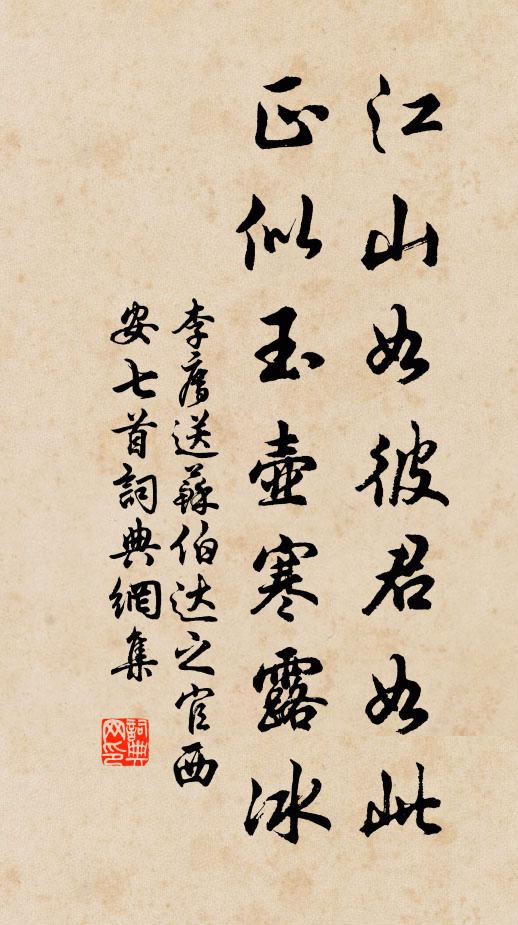 江山如彼君如此
正似玉壺寒露冰
李廌送蘇伯达之官西
安七首詞典網集
詞典网印